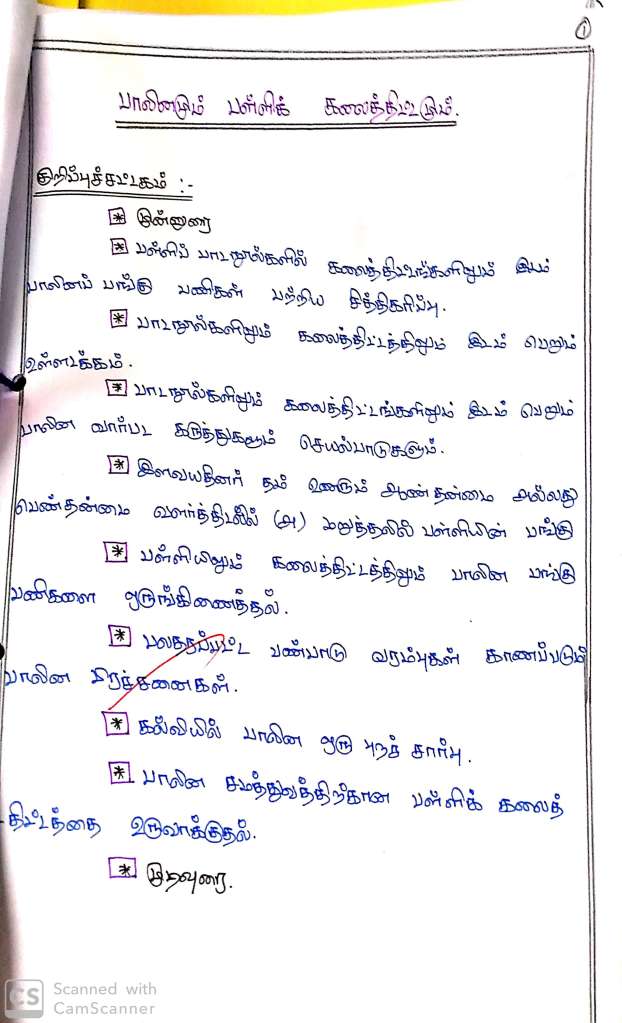 ①
பாலினமும் பள்ளிக் கலைத்திட்டமும்.
குறிப்புச்சட்டகம் :-
* முன்னுரை
* பள்ளிப் பாடநூல்களில் கலைத்திட்டங்களிலும் இடம்
பாலினப் பங்கு பணிகள் பற்றிய சித்திகரிப்பு.
* பாடநூல்களிலும் கலைத்திட்டத்திலும் இடம் பெறும்
உள்ளடக்கம்.
* பாடநூல்களிலும் கலைத்திட்டங்களிலும் இடம் பெறும்
பாலின வார்பட கருத்துகளும் செயல்பாடுகளும்.
* இளவயதினர் தம் உணரும் ஆண்தன்மை அல்லது
பெண்தன்மை வளர்த்திடலில் (அ) மறுத்தலில் பள்ளியின் பங்கு
* பள்ளியிலும் கலைத்திட்டத்திலும் பாலின பங்கு
பணிகளை ஒருங்கிணைத்தல்.
* பலதரப்பட்ட பண்பாடு வரம்புகள் காணப்படும்
பாலின பிரச்சனைகள்.
* கல்வியில் பாலின ஒரு புறச் சார்பு.
* பாலின சமத்துவத்திற்கான பள்ளிக் கலைத்
திட்டத்தை உருவாக்குதல்.
* முடிவுரை.
CS Scanned with
CamScanner